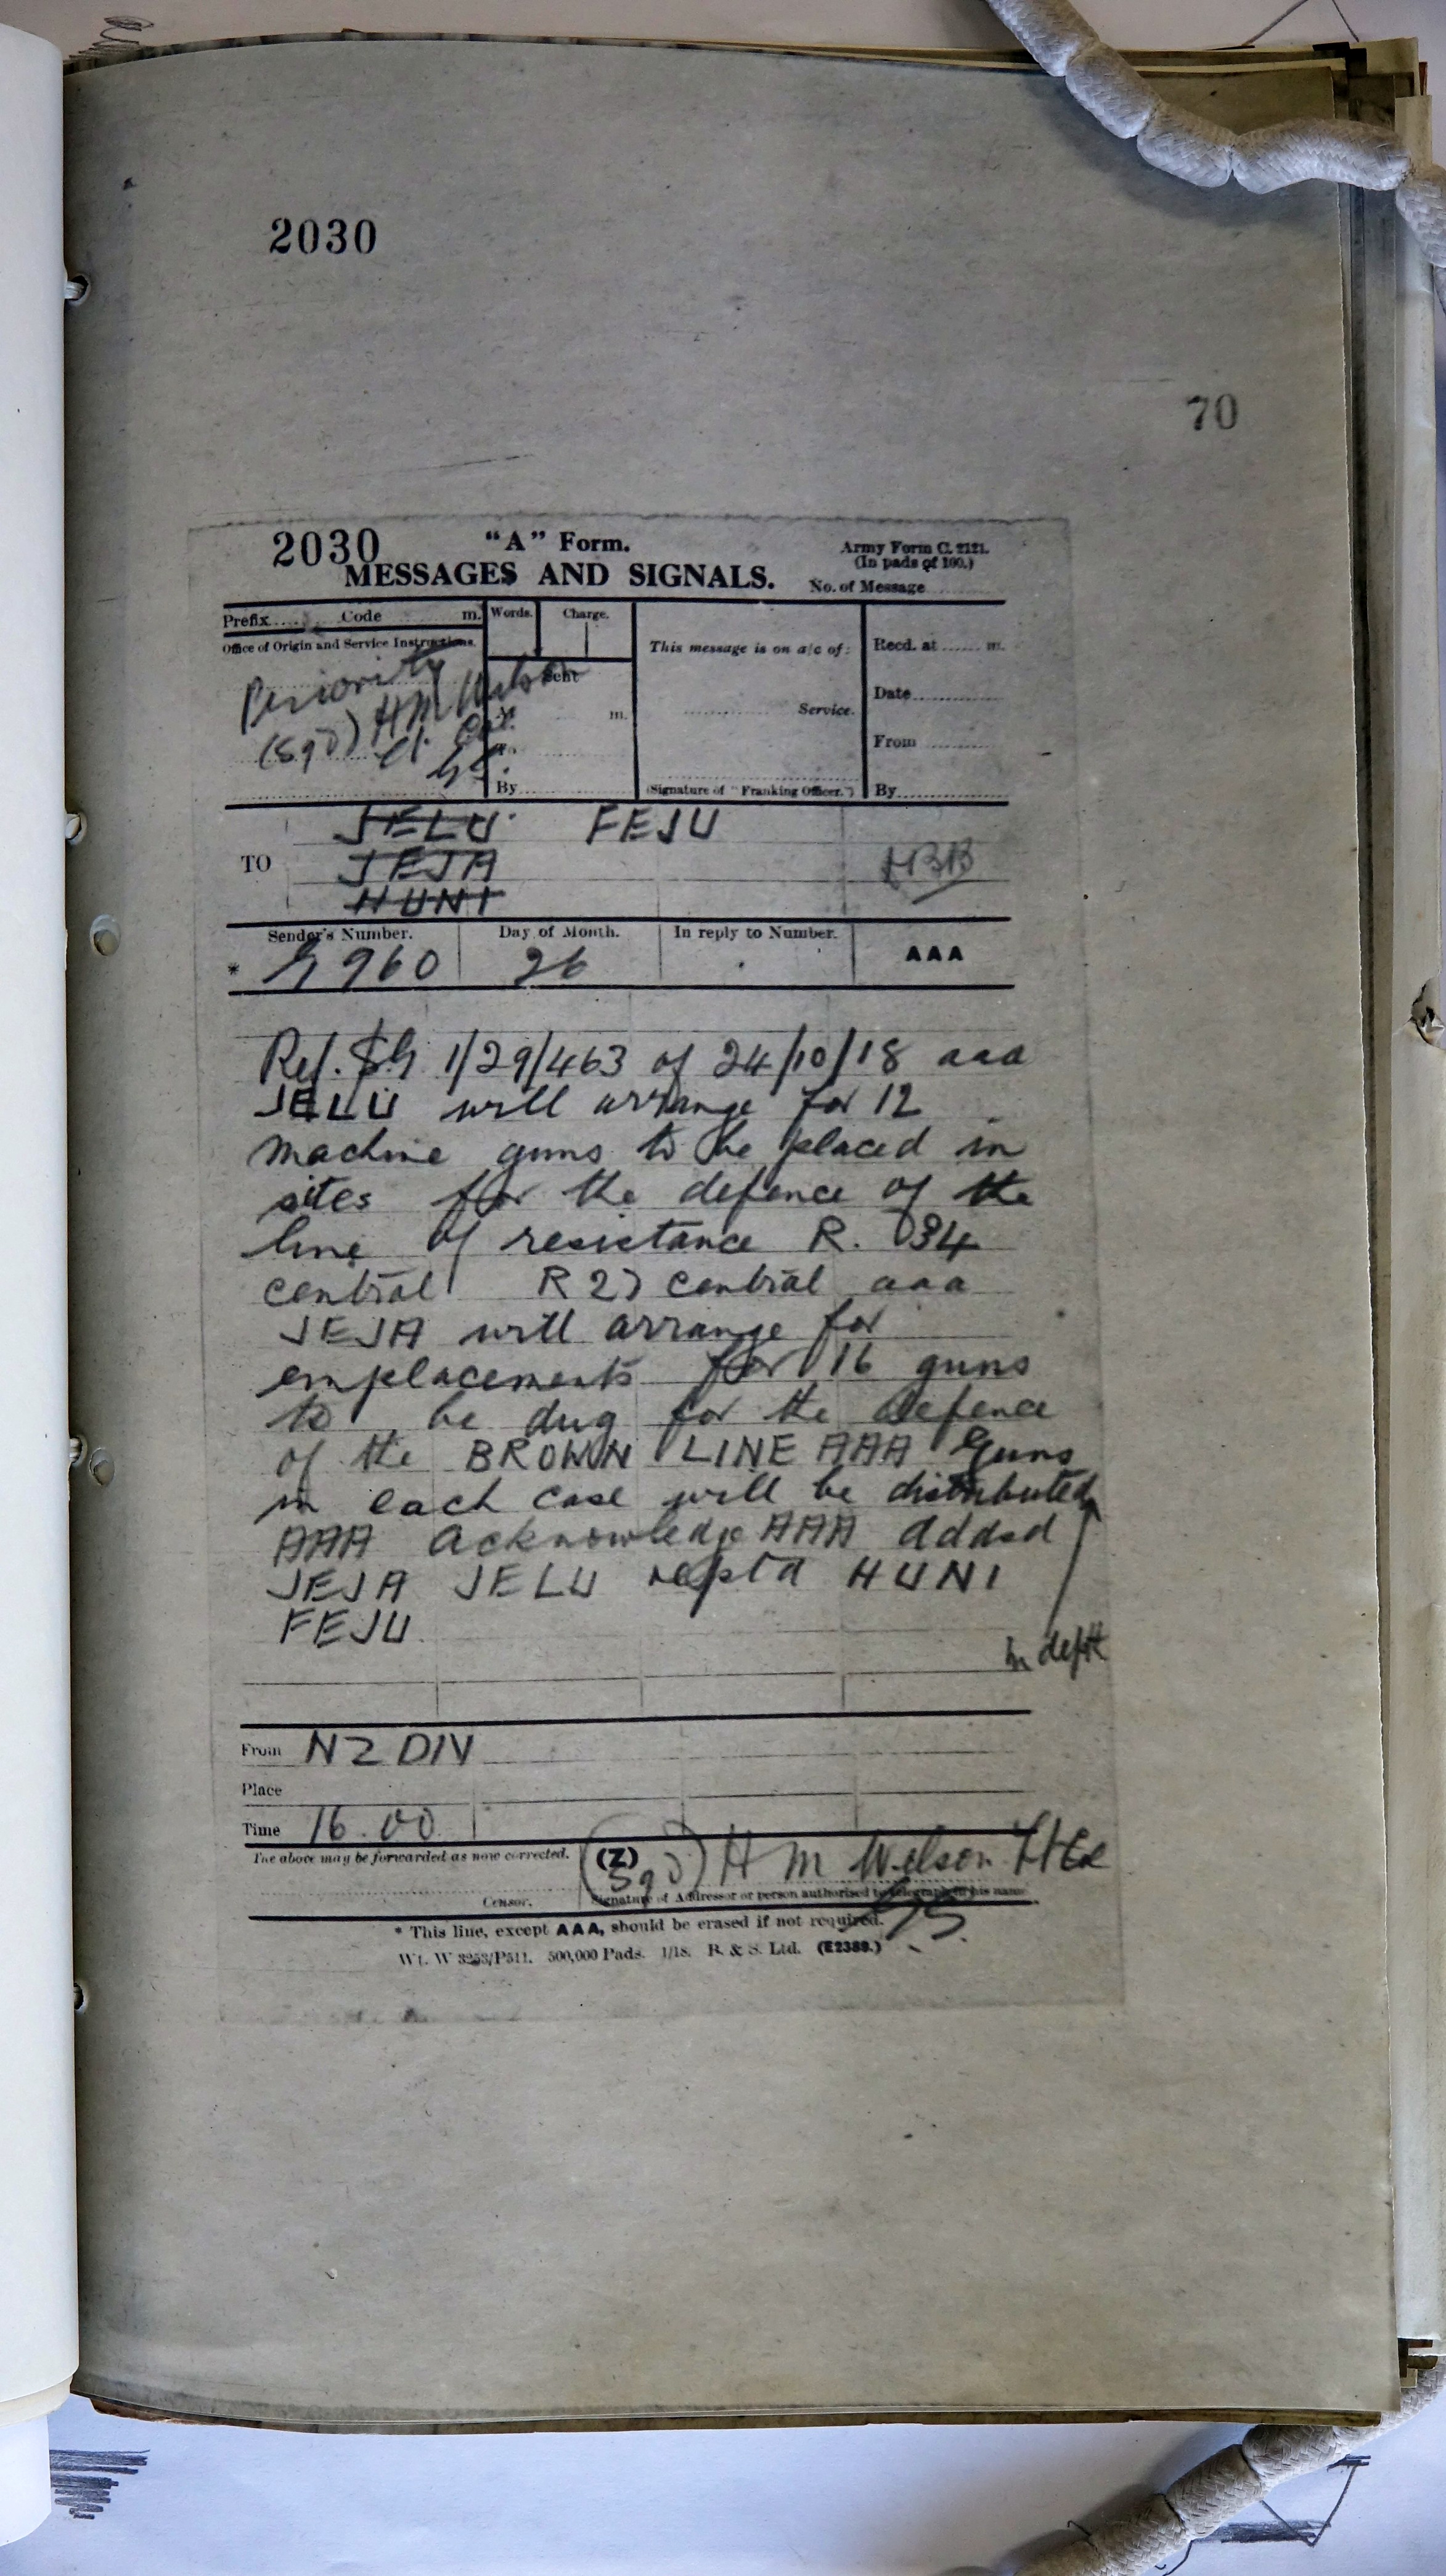 2030
70
2030
"A" Form.
Army Form C. 2121.
(In pads of 100.)
MESSAGES AND SIGNALS.
No. of Message
Prefix..... Code m.
Words.
Charge.
Office of Origin and Service Instructions.
Priority
(Sgd) HM Wilson
Lt. Col.
GS.
Sent
At m.
To
By
This message is on a/c of:
Service.
(Signature of "Franking Officer.")
Recd. at ...... m.
Date
From
By
TO
JELU FEJU
JEJA
HUNI
Sender's Number.
Day of Month.
In reply to Number.
AAA
* G 960 26
Ref. SG 1/29/463 of 24/10/18 aaa
JELU will arrange for 12
machine guns to be placed in
sites for the defence of the
line of resistance R. 34
central R 27 central aaa
JEJA will arrange for
emplacements for 16 guns
to be dug for the defence
of the BROWN LINE AAA Guns
in each case will be distributed
AAA Acknowledge AAA addsd
JEJA JELU reptd HUNI
FEJU
in depth
From NZ DIV
Place
Time 16.00
The above may be forwarded as now corrected.
(Z)
(Sgd) H M Wilson Lt Col
GS.
Censor.
Signature of Addressor or person authorised to telegraph in his name
* This line, except AAA, should be erased if not required.
Wt. W 3253/P511. 500,000 Pads. 1/18. B. & S. Ltd. (E2389.)